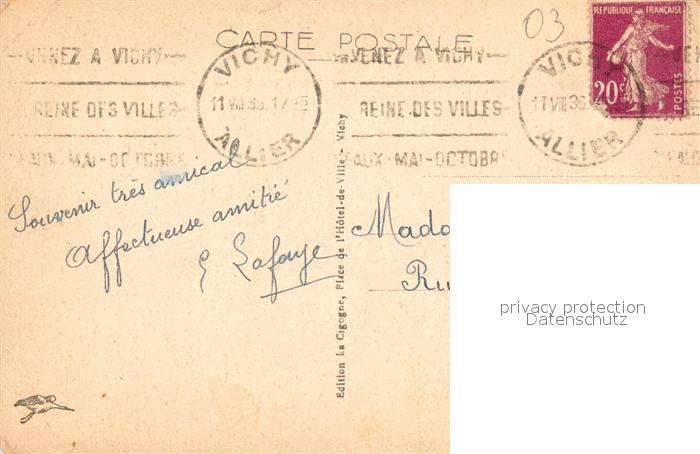 CARTE POSTALE
03
REPUBLIQUE FRANÇAISE
20c
POSTES
VENEZ A VICHY
REINE DES VILLES
EAUX-MAI-OCTOBRE
VICHY
11 VIII 36
ALLIER
VENEZ A VICHY
REINE DES VILLES
EAUX-MAI-OCTOBR
VICHY
11 VIII 36
ALLIER
Souvenir très amical
Affectueuse amitié
E Lafaye
Edition La Cigogne, Place de l'Hôtel-de-Ville - Vichy
Mada
Ru
privacy protection
Datenschutz